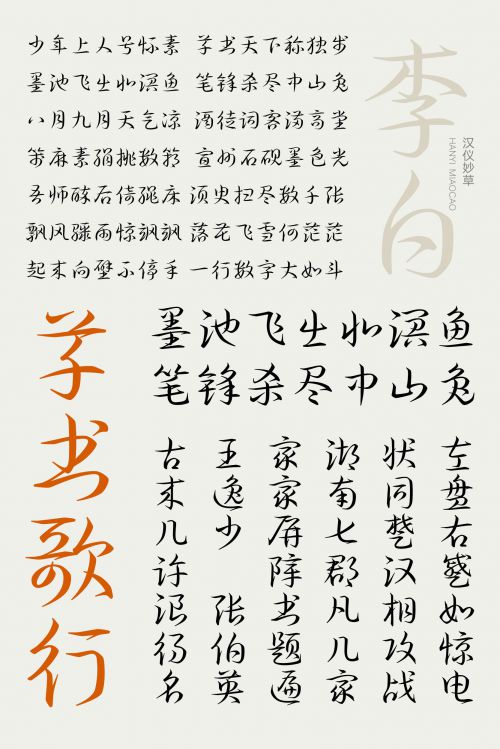 少年上人号怀素 草书天下称独步
墨池飞出北溟鱼 笔锋杀尽中山兔
八月九月天气凉 酒徒词客满高堂
笺麻素绢排数箱 宣州石砚墨色光
吾师醉后倚绳床 须臾扫尽数千张
飘风骤雨惊飒飒 落花飞雪何茫茫
起来向壁不停手 一行数字大如斗
李白
汉仪妙草
HANYI MIAOCAO
草书歌行
墨池飞出北溟鱼
笔锋杀尽中山兔
左盘右蹙如惊电
状同楚汉相攻战
湖南七郡凡几家
家家屏障书题遍
王逸少 张伯英
古来几许浪得名